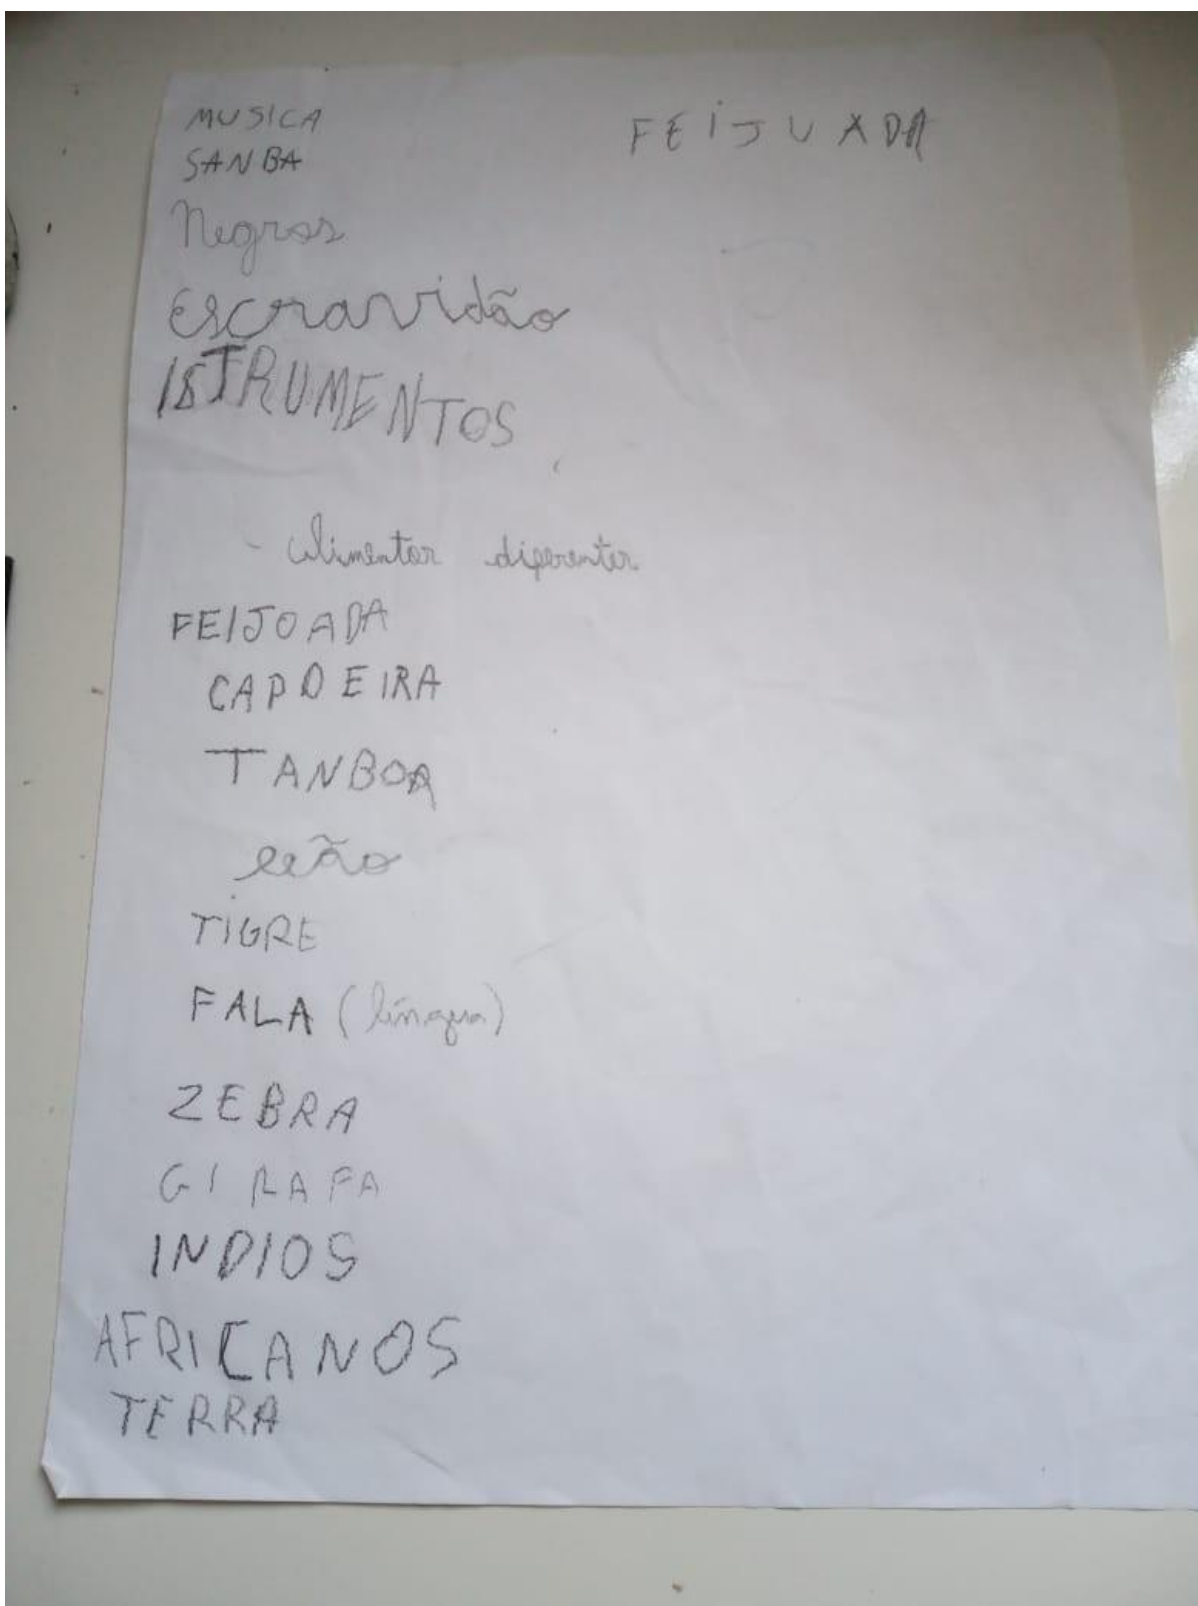 MUSICA
FEIJUADA
SANBA
Negros
Escravidão
ISTRUMENTOS
- Alimentos diferentes
FEIJOADA
CAPOEIRA
TANBOR
leão
TIGRE
FALA (língua)
ZEBRA
GIRAFA
INDIOS
AFRICANOS
TERRA